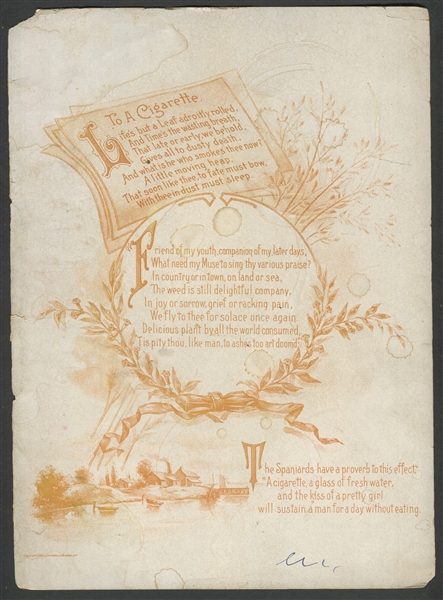 To A Cigarette.
Life's but a Leaf adroitly rolled,
And Time's the wasting breath,
That late or early, we behold,
Gives all to dusty death.
And what is he who smokes thee now?
A little moving heap,
That soon like thee, to fate must bow,
With thee in dust must sleep.
Friend of my youth, companion of my later days,
What need my Muse to sing thy various praise?
In country or in town, on land or sea,
The weed is still delightful company.
In joy or sorrow, grief or racking pain,
We fly to thee for solace once again
Delicious plant by all the world consumed,
Tis pity thou, like man, to ashes too art doomd.
The Spaniards have a proverb to this effect
"A cigarette, a glass of fresh water,
and the kiss of a pretty girl
will sustain a man for a day without eating.